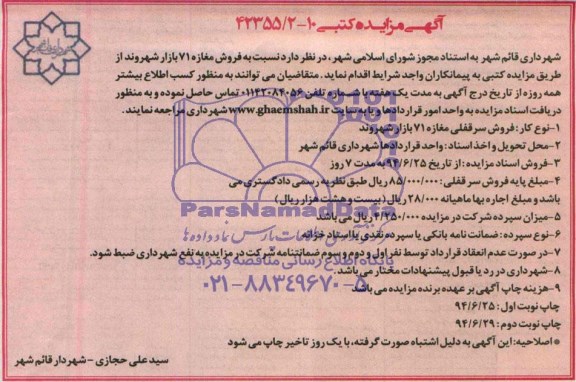 آگهی مزایده کتبی ۱۰-۴۲۳۵۵/۲
شهرداری قائم شهر به استناد مجوز شورای اسلامی شهر، در نظر دارد نسبت به فروش مغازه ۷۱ بازار شهروند از
طریق مزایده کتبی به پیمانکاران واجد شرایط اقدام نماید. متقاضیان می توانند به منظور کسب اطلاع بیشتر
همه روزه از تاریخ درج آگهی به مدت یک هفته با شماره تلفن ۰۱۱۴۲۰۸۴۰۵۶ تماس حاصل نموده و به منظور
دریافت اسناد مزایده به واحد امور قراردادها و یا به سایت www.ghaemshah.ir شهرداری مراجعه نمایند.
۱-نوع کار: فروش سرقفلی مغازه ۷۱ بازار شهروند
۲-محل تحویل و اخذ اسناد: واحد قراردادها شهرداری قائم شهر
۳-فروش اسناد مزایده: از تاریخ ۹۴/۶/۲۵ به مدت ۷ روز
۴-مبلغ پایه فروش سرقفلی: ۸۵/۰۰۰/۰۰۰ ریال طبق نظریه رسمی دادگستری می
باشد و مبلغ اجاره بها ماهیانه ۲۸/۰۰۰ ریال (بیست و هشت هزار ریال)
۵-میزان سپرده شرکت در مزایده ۴/۲۵۰/۰۰۰ ریال می باشد
۶-نوع سپرده: ضمانت نامه بانکی یا سپرده نقدی یا اسناد خزانه
۷-در صورت عدم انعقاد قرارداد توسط نفر اول و دوم و سوم ضمانتنامه شرکت در مزایده به نفع شهرداری ضبط شود.
۸-شهرداری در رد یا قبول پیشنهادات مختار می باشد.
۹-هزینه چاپ آگهی بر عهده برنده مزایده می باشد
چاپ نوبت اول: ۹۴/۶/۲۵
چاپ نوبت دوم: ۹۴/۶/۲۹
* اصلاحیه: این آگهی به دلیل اشتباه صورت گرفته، با یک روز تاخیر چاپ می شود
سید علی حجازی - شهردار قائم شهر
ParsNamadData
پایگاه اطلاع رسانی مناقصه و مزایده
۰۲۱-۸۸۳۴۹۶۷۰-۵